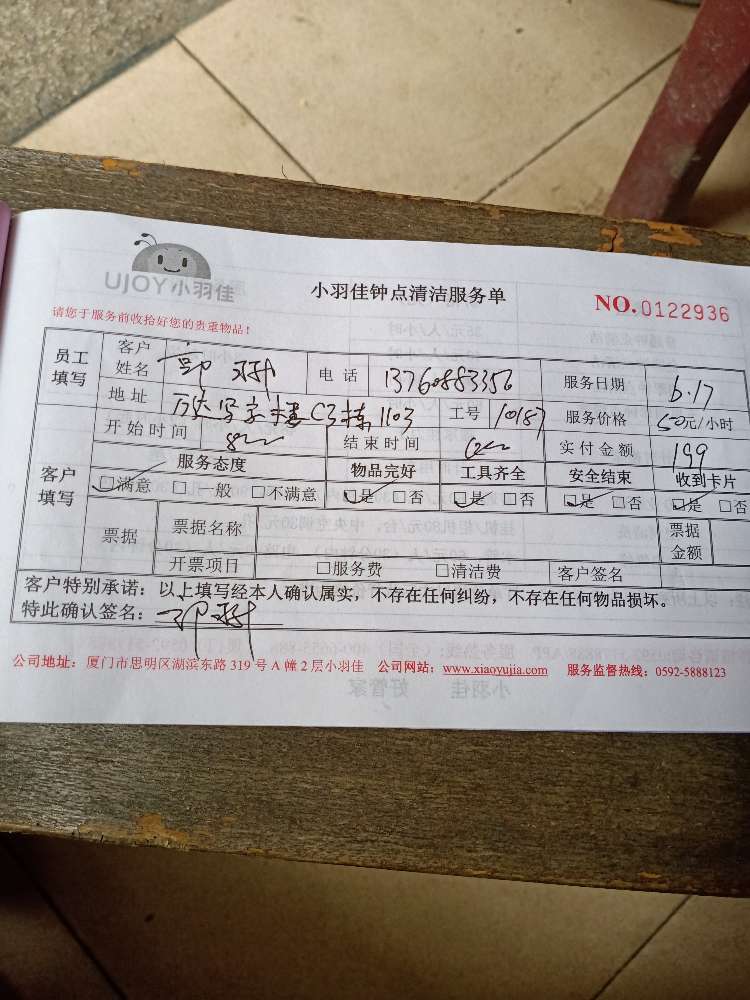 UJOY小羽佳
小羽佳钟点清洁服务单
NO.0122936
请您于服务前收拾好您的贵重物品！
员工填写 客户姓名 电话 13760883356 服务日期 6.17
地址 万达写字楼C3栋1103 工号 10187 服务价格 50元/小时
客户填写 开始时间 结束时间 实付金额 199
服务态度 物品完好 工具齐全 安全结束 收到卡片
☑满意 □一般 □不满意 ☑是 □否 ☑是 □否 ☑是 □否 ☑是 □否
票据 票据名称 票据金额
开票项目 □服务费 □清洁费 客户签名
客户特别承诺：以上填写经本人确认属实，不存在任何纠纷，不存在任何物品损坏。
特此确认签名：
公司地址：厦门市思明区湖滨东路 319 号 A 幢 2 层小羽佳 公司网站：www.xiaoyujia.com 服务监督热线：0592-5888123